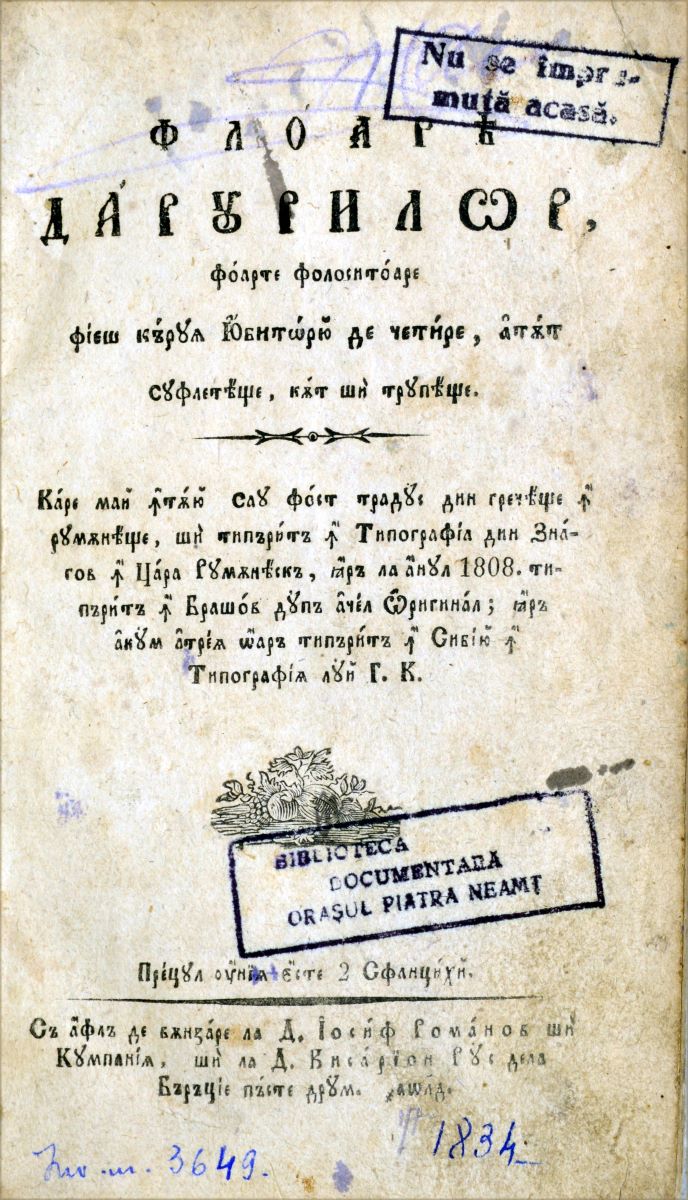 Nu se împru-
mută acasă.
ФЛО́АРѢ
ДА́РꙊРИЛѠР,
фо́арте фолосито́аре
фіеш къ́рꙋѧ Юбитѡ́рю̆ де чети́ре, а҆тѫ́т
сꙋфлетѣ́ще, кѫт ши трꙋпѣ́ще.
Ка́ре май ꙟ҆тѫ́ю̆ сꙋ фо́ст традꙋс дин гречѣ́ще ꙟ҆
рꙋмѫнѣ́ще, ши типъри́т ꙟ҆ Типографі́а дин Зна́-
гов ꙟ҆ Цара Рꙋмѫнѣ́ск, ꙗ҆ръ ла а҆нꙋл 1808. ти-
пъри́т ꙟ҆ Брашо́в дꙋпъ аче́л Ѡригина́л; ꙗ҆ръ
акꙋм атре́ѧ ѡ҆аръ типъри́т ꙟ҆ Сибі́ю̆ ꙟ҆
Типографі́ѧ лꙋй Г. К.
BIBLIOTECA
DOCUMENTARĂ
ORAȘUL PIATRA NEAMȚ
Пре́цꙋл оу҆нїѧ є҆сте 2 Сфанцихй.
Съ а҆флъ де вѫнза́ре ла Д. Іоси́ф Рома́нов ши
Кꙋмпані́ѧ, ши ла Д. Висаріон Рꙋс дела
Бъръціе пъсте дрꙋм. ҂аѡлд.
Inv. nr. 3649.
1834